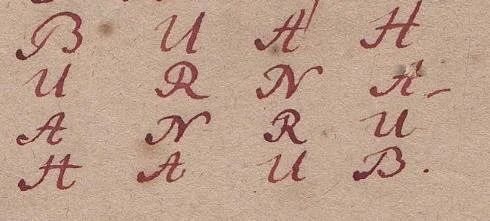 B U A H
U R N A
A N R U
H A U B.